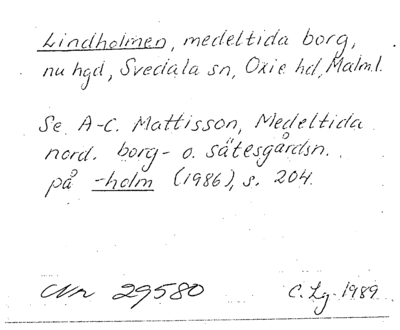 Lindholmen, medeltida borg,
nu hgd, Svedala sn, Oxie hd, Malm.l.
Se A-C. Mattisson, Medeltida
nord. borg- o. sätesgårdsn.
på -holm (1986), s. 204.
Nr 29580 C. Lg. 1989